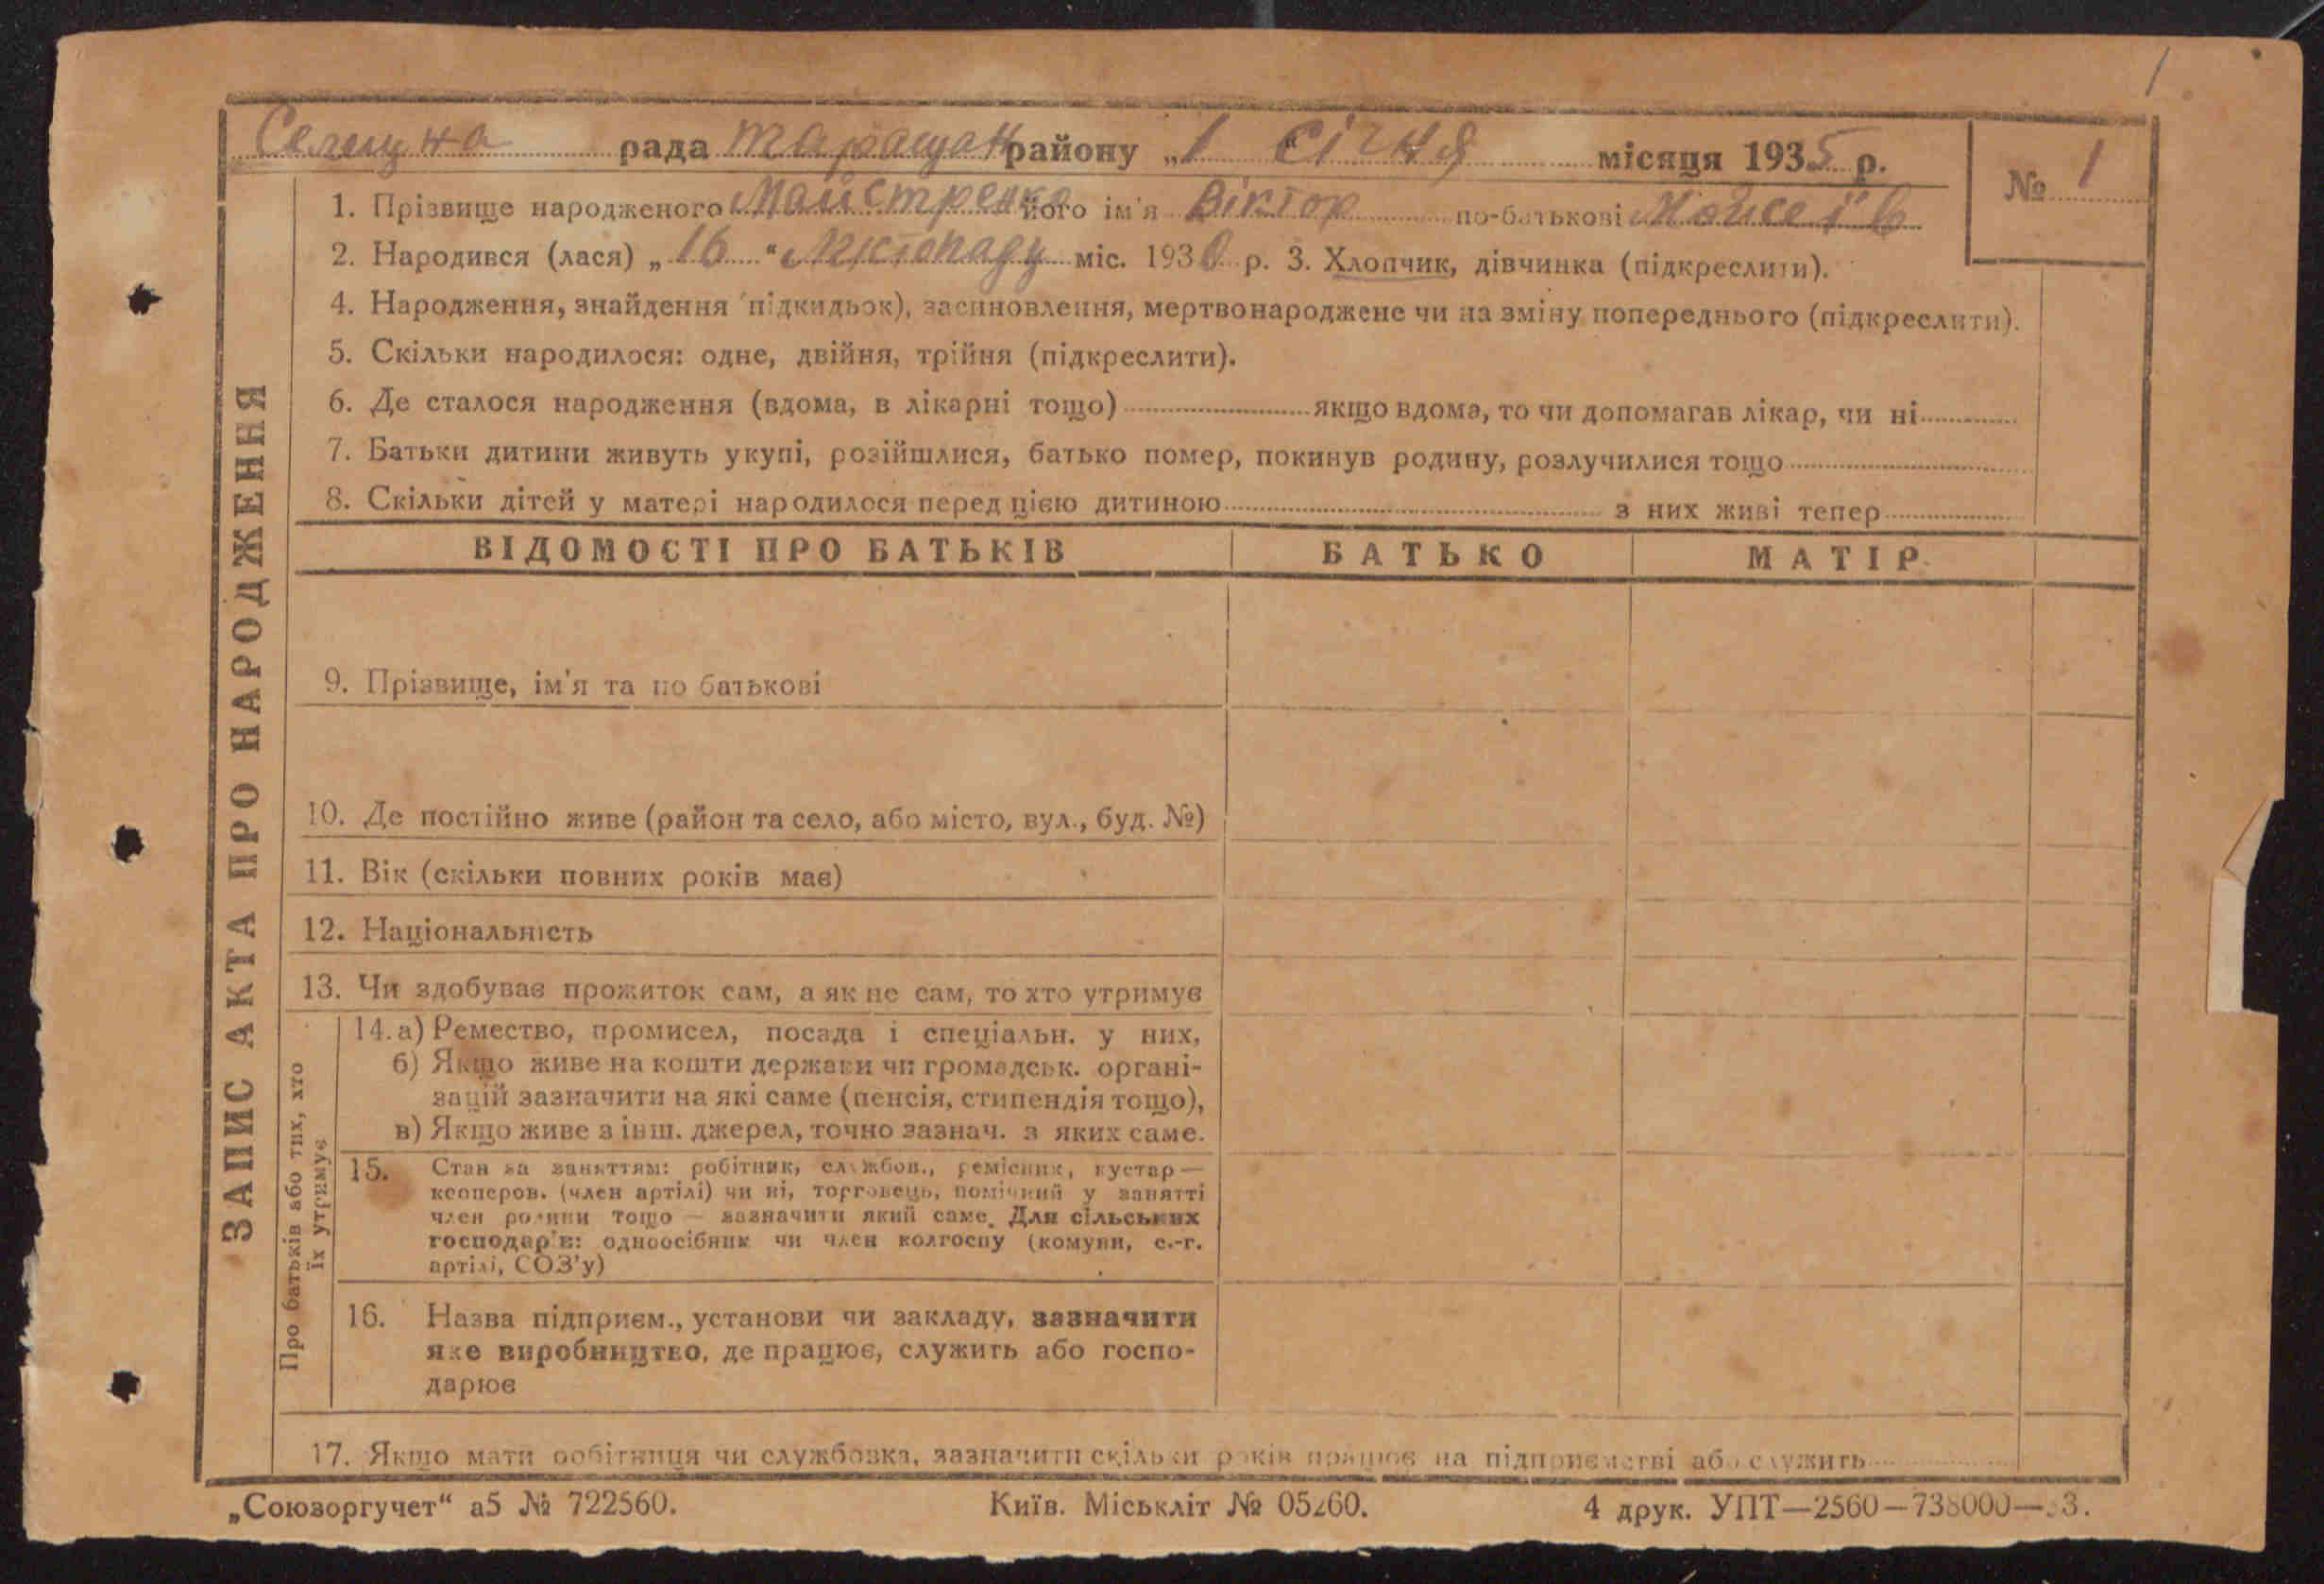 1
Селищна рада Таращан району „1“ Січня місяця 1935 р.
№ 1
1. Прізвище народженого Майстренко його ім'я Віктор по-батькові Мойсеїв
2. Народився (лася) „16“ Листопаду міс. 1930 р. 3. Хлопчик, дівчинка (підкреслити).
4. Народження, знайдення (підкидьок), засиновлення, мертвонароджене чи на зміну попереднього (підкреслити).
5. Скільки народилося: одне, двійня, трійня (підкреслити).
6. Де сталося народження (вдома, в лікарні тощо) якщо вдома, то чи допомагав лікар, чи ні
7. Батьки дитини живуть укупі, розійшлися, батько помер, покинув родину, розлучилися тощо
8. Скільки дітей у матері народилося перед цією дитиною з них живі тепер
ЗАПИС АКТА ПРО НАРОДЖЕННЯ
ВІДОМОСТІ ПРО БАТЬКІВ БАТЬКО МАТІР
9. Прізвище, ім'я та по батькові
10. Де постійно живе (район та село, або місто, вул., буд. №)
11. Вік (скільки повних років має)
12. Національність
13. Чи здобуває прожиток сам, а як не сам, то хто утримує
Про батьків або тих, хто
їх утримує
14. а) Ремество, промисел, посада і спеціальн. у них,
б) Якщо живе на кошти держави чи громадськ. органі-
зацій зазначити на які саме (пенсія, стипендія тощо),
в) Якщо живе з інш. джерел, точно зазнач. з яких саме.
15. Стан за заняттям: робітник, службов., ремісник, кустар —
кооперов. (член артілі) чи ні, торговець, помічний у занятті
член родини тощо — зазначити який саме. Для сільських
господарів: одноосібник чи член колгоспу (комуни, с.-г.
артілі, СОЗ'у)
16. Назва підприєм., установи чи закладу, зазначити
яке виробництво, де працює, служить або госпо-
дарює
17. Якщо мати робітниця чи службовка, зазначити скільки років працює на підприємстві або служить
„Союзоргучет“ а5 № 722560. Київ. Міськліт № 05260. 4 друк. УПТ—2560—738000—33.